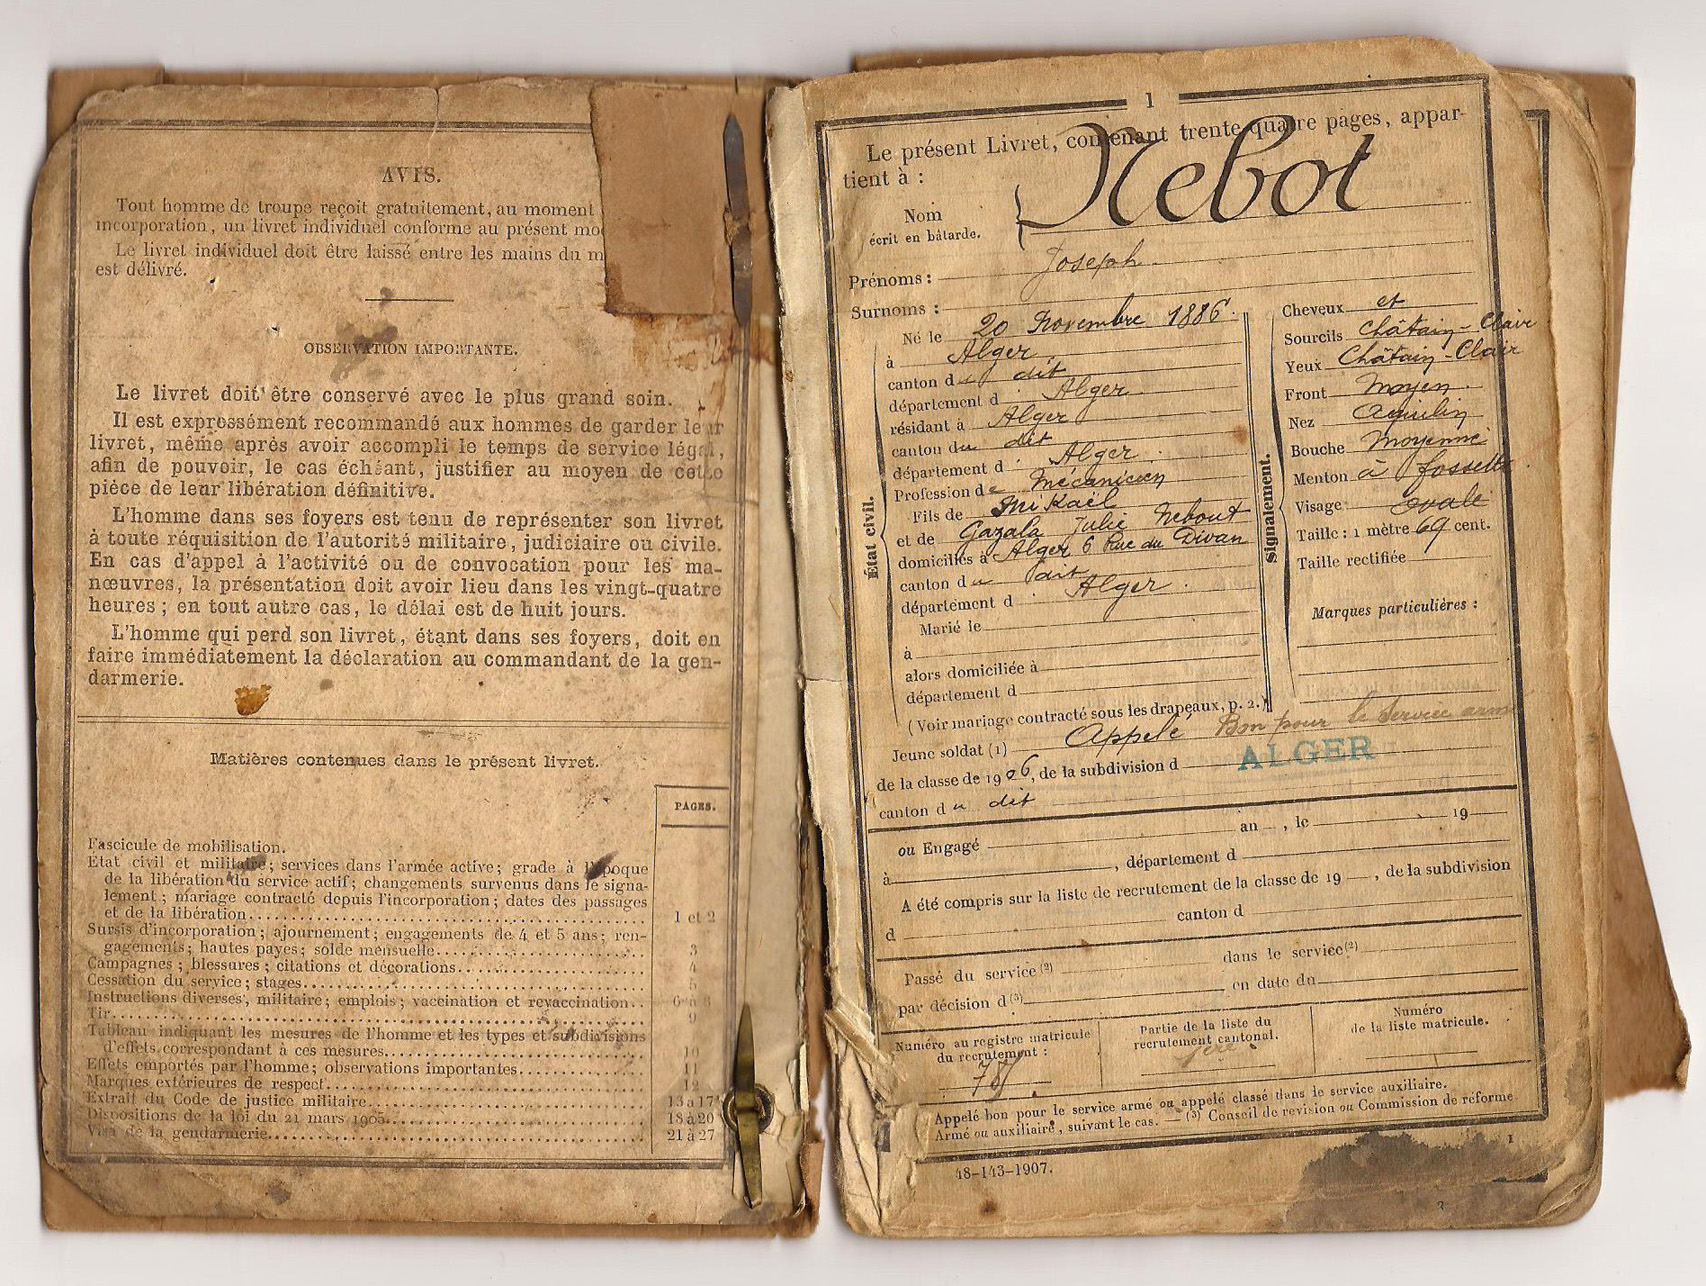 AVIS.
Tout homme de troupe reçoit gratuitement, au moment
incorporation, un livret individuel conforme au présent
Le livret individuel doit être laissé entre les mains du
est délivré.
OBSERVATION IMPORTANTE.
Le livret doit être conservé avec le plus grand soin.
Il est expressément recommandé aux hommes de garder leur
livret, même après avoir accompli le temps de service légal,
afin de pouvoir, le cas échéant, justifier au moyen de cette
pièce de leur libération définitive.
L'homme dans ses foyers est tenu de représenter son livret
à toute réquisition de l'autorité militaire, judiciaire ou civile.
En cas d'appel à l'activité ou de convocation pour les ma-
nœuvres, la présentation doit avoir lieu dans les vingt-quatre
heures ; en tout autre cas, le délai est de huit jours.
L'homme qui perd son livret, étant dans ses foyers, doit en
faire immédiatement la déclaration au commandant de la gen-
darmerie.
Matières contenues dans le présent livret.
PAGES.
Fascicule de mobilisation.
État civil et militaire ; services dans l'armée active ; grade à l'époque
de la libération du service actif ; changements survenus dans le signa-
lement ; mariage contracté depuis l'incorporation ; dates des passages
et de la libération. 1 et 2
Sursis d'incorporation ; ajournement ; engagements de 4 et 5 ans ; ren-
gagements ; hautes payes ; solde mensuelle. 3
Campagnes ; blessures ; citations et décorations. 4
Cessation du service ; stages. 5
Instructions diverses, militaire ; emplois ; vaccination et revaccination. 6 à 8
Tir. 9
Tableau indiquant les mesures de l'homme et les types et subdivisions
d'effets correspondant à ces mesures. 10
Effets emportés par l'homme ; observations importantes. 11
Marques extérieures de respect. 12
Extrait du Code de justice militaire. 13 à 17
Dispositions de la loi du 21 mars 1905. 18 à 20
Visa de la gendarmerie. 21 à 27
1
Le présent Livret, contenant trente quatre pages, appar-
tient à :
Nom Nebot
écrit en bâtarde.
Prénoms : Joseph
Surnoms :
État civil.
Né le 20 Novembre 1886.
à Alger
canton du dit
département d Alger
résidant à Alger
canton du dit
département d Alger
Profession de Mécanicien
Fils de Mikaël
et de Gazala Julie Nebout
domiciliés à Alger 6 Rue du Divan
canton du dit
département d Alger
Marié le
à
alors domiciliée à
département d
(Voir mariage contracté sous les drapeaux, p. 2.)
Signalement.
Cheveux et
Sourcils Châtain-Clair
Yeux Châtain-Clair
Front Moyen
Nez Aquilin
Bouche Moyenne
Menton à fossette
Visage ovale
Taille : 1 mètre 69 cent.
Taille rectifiée
Marques particulières :
Jeune soldat (1) Appelé Bon pour le service armé
de la classe de 1906, de la subdivision d ALGER
canton du dit
ou Engagé an , le 19
à , département d
A été compris sur la liste de recrutement de la classe de 19 , de la subdivision
d canton d
Passé du service (2) dans le service (2)
par décision d (3) en date du
Numéro au registre matricule
du recrutement :
Partie de la liste du
recrutement cantonal.
1ère
Numéro
de la liste matricule.
Appelé bon pour le service armé ou appelé classé dans le service auxiliaire.
Armé ou auxiliaire, suivant le cas. — (3) Conseil de revision ou Commission de réforme
48-143-1907.